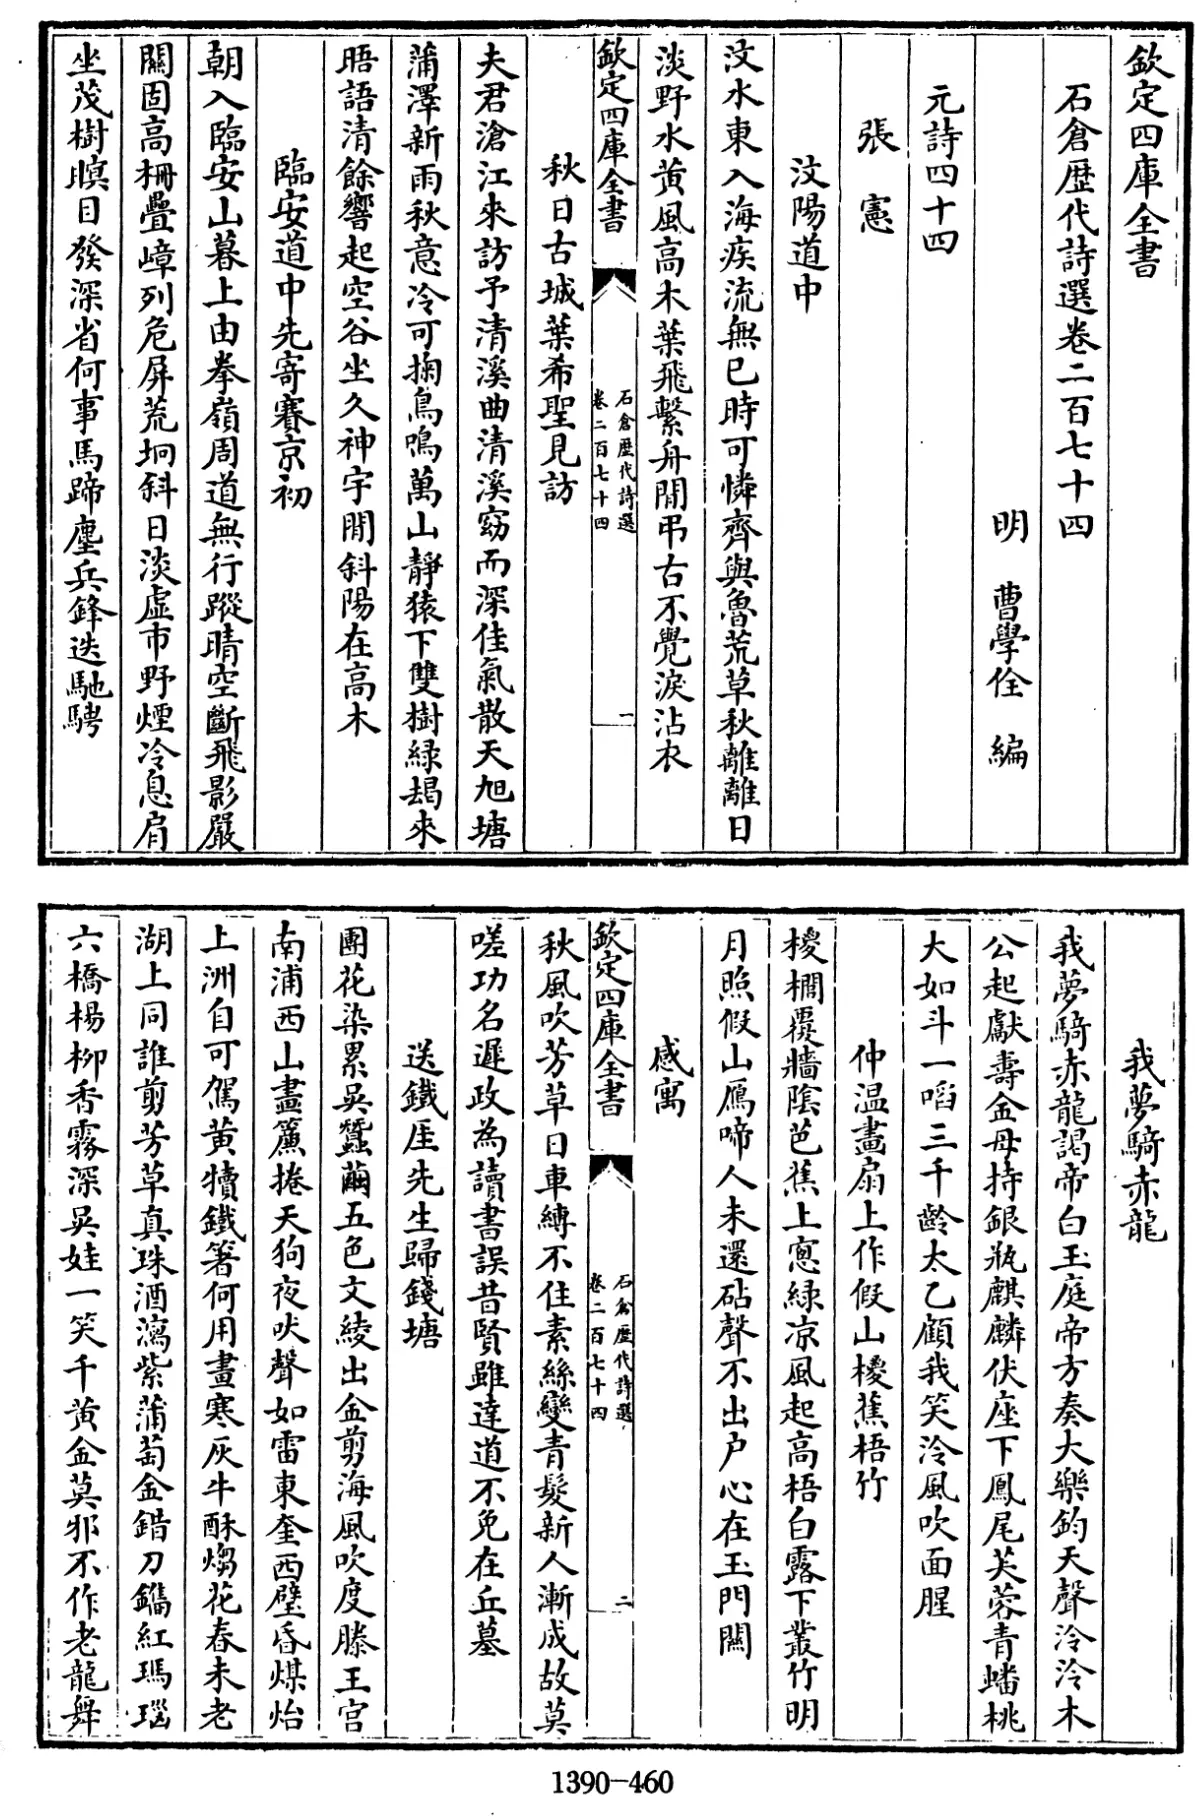 欽定四庫全書
石倉歴代詩選卷二百七十四
明 曹學佺 編
元詩四十四
張憲
汶陽道中
汶水東入海疾流無已時可憐齊與魯荒草秋離離日
淡野水黄風高木葉飛繫舟閒弔古不覺淚沾衣
欽定四庫全書
石倉歴代詩選
卷二百七十四
一
秋日古城葉希聖見訪
夫君滄江來訪予清溪曲清溪窈而深佳氣散天旭塘
蒲澤新雨秋意冷可掬鳥鳴萬山靜猿下雙樹緑朅來
晤語清餘響起空谷坐久神宇閒斜陽在高木
臨安道中先寄賽京初
朝入臨安山暮上由拳嶺周道無行蹤晴空斷飛影嚴
關固高柵疊嶂列危屏荒坰斜日淡虚市野煙冷息肩
坐茂樹瞑目發深省何事馬蹄塵兵鋒迭馳騁
我夢騎赤龍
我夢騎赤龍謁帝白玉庭帝方奏大樂鈞天聲泠泠木
公起獻壽金母持銀瓶麒麟伏座下鳳尾芙蓉青蟠桃
大如斗一㗖三千齡太乙顧我笑泠風吹面腥
仲温畫扇上作假山椶蕉梧竹
椶櫚覆牆陰芭蕉上窻緑凉風起高梧白露下叢竹明
月照假山鴈啼人未還砧聲不出户心在玉門關
感寓
欽定四庫全書
石倉歴代詩選
卷二百七十四
二
秋風吹芳草日車縛不住素絲變青髮新人漸成故莫
嗟功名遲政為讀書誤昔賢雖達道不免在丘墓
送鐵厓先生歸錢塘
團花染累吳蠶繭五色文綾出金剪海風吹度滕王宫
南浦西山畫簾捲天狗夜吠聲如雷東奎西璧昏煤炲
上洲自可駕黄犢鐵箸何用畫寒灰牛酥煼花春未老
湖上同誰剪芳草真珠酒瀉紫蒲萄金錯刀鐫紅瑪瑙
六橋楊柳香霧深吳娃一笑千黄金莫邪不作老龍舞
1390-460